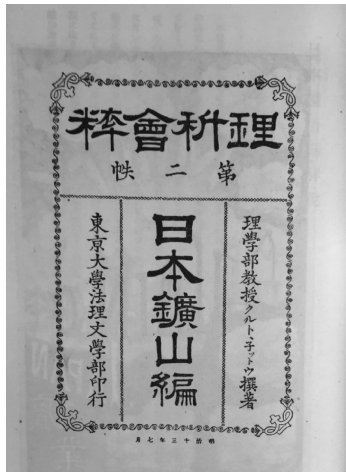 理科會粹
第二帙
理學部教授クルト、子ットウ撰著
日本鑛山編
東京大學法理文學部印行
明治十三年七月